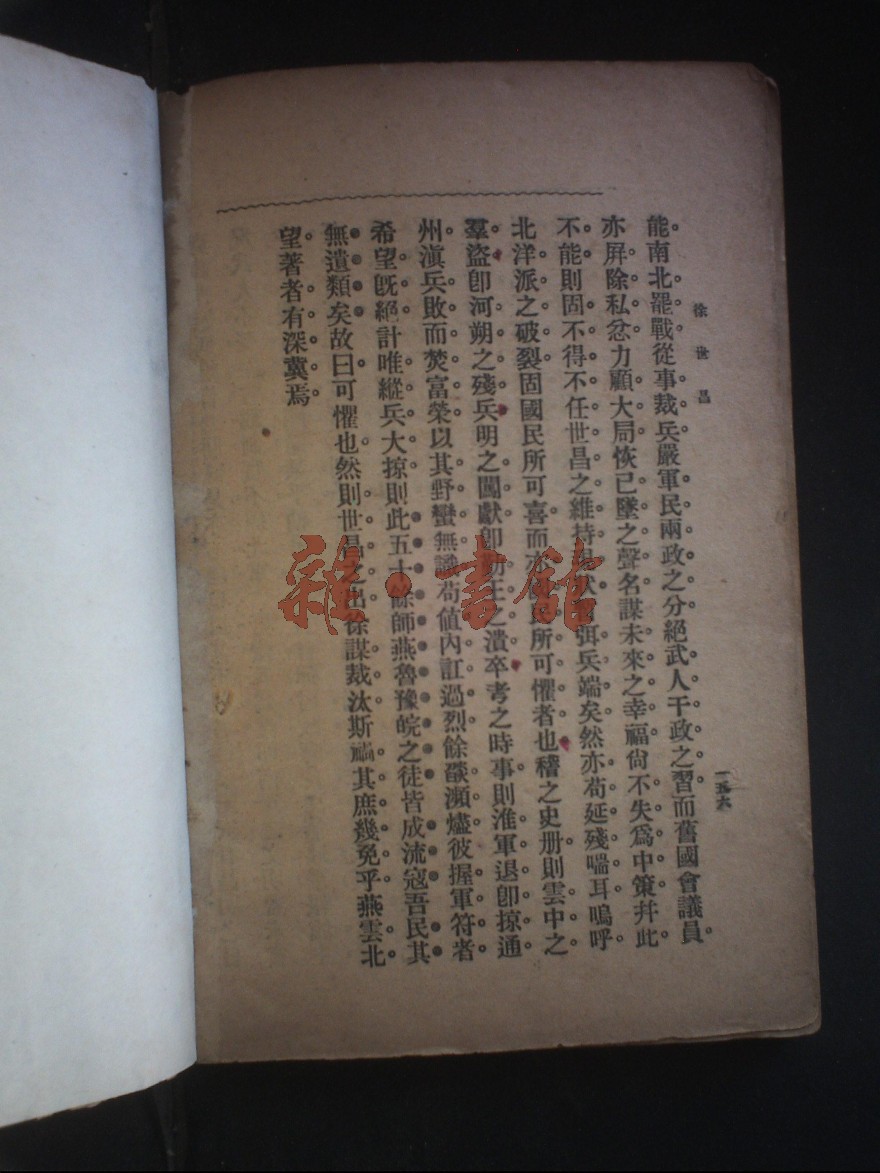 徐世昌
能南北罷戰從事裁兵嚴軍民兩政之分絕武人干政之習而舊國會議員
亦屏除私忿力顧大局恢已墜之聲名謀未來之幸福尙不失爲中策幷此
不能則固不得不任世昌之維持現狀暫弭兵端矣然亦苟延殘喘耳嗚呼
北洋派之破裂固國民所可喜而亦國民所可懼者也稽之史册則雲中之
羣盜卽河朔之殘兵明之闖獻卽勤王之潰卒考之時事則淮軍退卽掠通
州滇兵敗而焚富榮以其野蠻無識苟値內訌過烈餘燄瀕燼彼握軍符者
希望旣絕計唯縱兵大掠則此五十餘師燕魯豫皖之徒皆成流寇吾民其
無遺類矣故曰可懼也然則世昌之出徐謀裁汰斯禍其庶幾免乎燕雲北
望著者有深冀焉
一五六
雜·書館